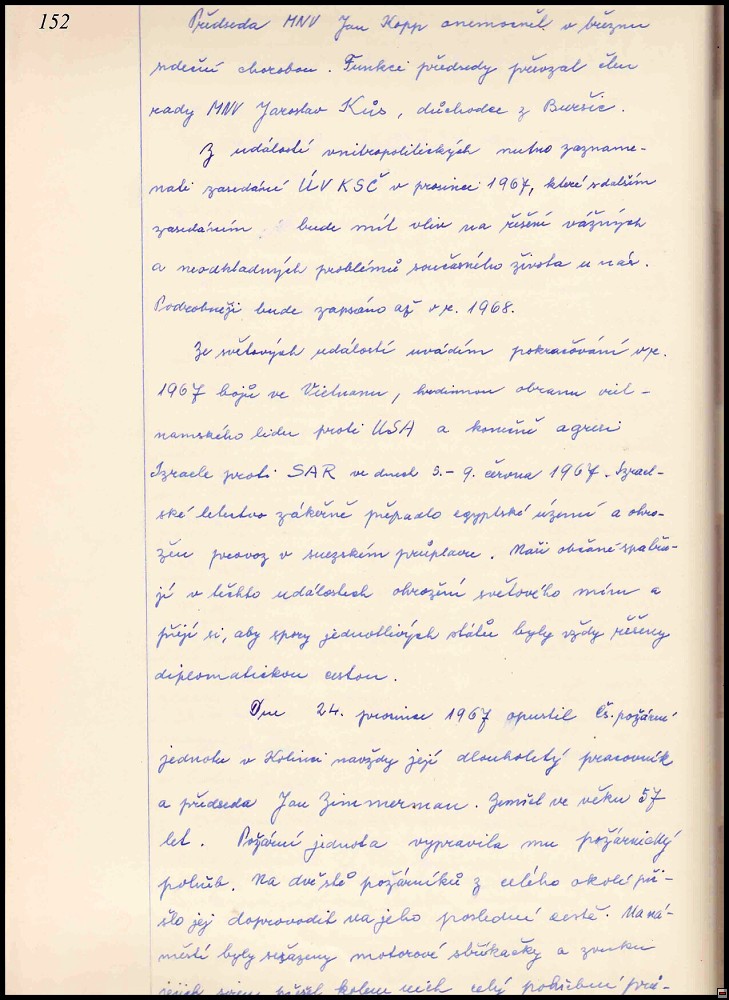 152
Předseda MNV Jan Kopp onemocněl v březnu
srdeční chorobou. Funkci předsedy převzal člen
rady MNV Jaroslav Kůs, důchodce z Buršic.
Z událostí vnitropolitických nutno zazname-
nati zasedání ÚV KSČ v prosinci 1967, které s dalším
zasedáním bude mít vliv na řešení vážných
a neodkladných problémů současného života u nás.
Podrobněji bude zapsáno až v r. 1968.
Ze světových událostí uvádím pokračování v r.
1967 bojů ve Vietnamu, hrdinnou obranu viet-
namského lidu proti USA a konečně agresi
Izraele proti SAR ve dnech 5.-9. června 1967. Izrael-
ské letectvo zákeřně přepadlo egyptské území a ohro-
žen provoz v suezském průplavu. Naši občané spatřu-
jí v těchto událostech ohrožení světového míru a
přejí si, aby spory jednotlivých států byly vždy řešeny
diplomatickou cestou.
Dne 24. prosince 1967 opustil čs. požární
jednotu v Kolinci navždy její dlouholetý pracovník
a předseda Jan Zimmerman. Zemřel ve věku 57
let. Požární jednota vypravila mu požárnický
pohřeb. Na dvě stě požárníků z celého okolí při-
šlo jej doprovodit na jeho poslední cestě. Na ná-
městí byly seřazeny motorové stříkačky a zvuku
jejich siren přešel kolem nich celý pohřební prů-